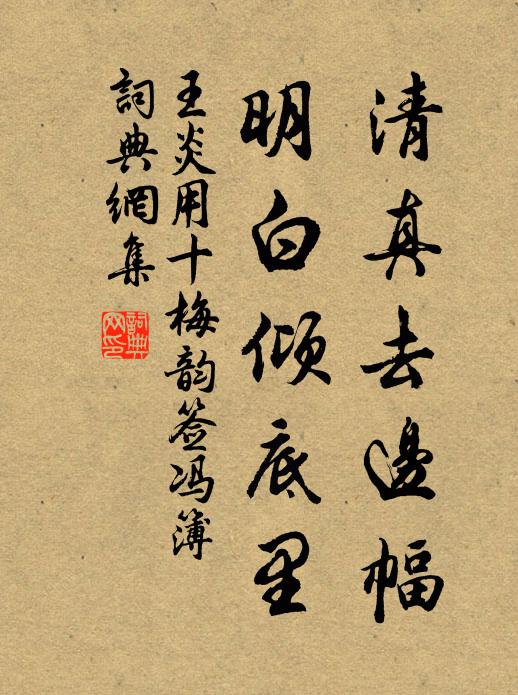 清真去邊幅
明白傾底里
王炎用十梅韵簽冯簿
詞典網集
詞典网印